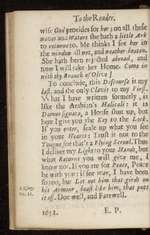 To the Reader.
wise God provides for her; on all these
waves and Waters she hath a little Ark
to retreat to. Me thinks I see her at
the window all wet, and weather beaten.
She hath been rejected abroad, and
now I will take her Home. Come in
with thy Branch of Olive]
To conclude, this Discourse is my
last, and the only Clavis to my First.
What I have written formerly, is
like the Arabian's Halicali: it is
Domus signata, a House shut up, but
here I give you the Key to the Lock.
If you enter, seale up what you see
in your Hearts; Trust it not to the
Tongue for that's a flying Scroul. Thus
I deliver my Light to your Hands, but
what Returns you will give me, I
know not. If you are for Peace, Peace
be with you: if for war, I have been
so too, but Let not him that girds on
his Armour, boast like him, that puts
it off. Doe well, and Farewell.
1651. E. P.